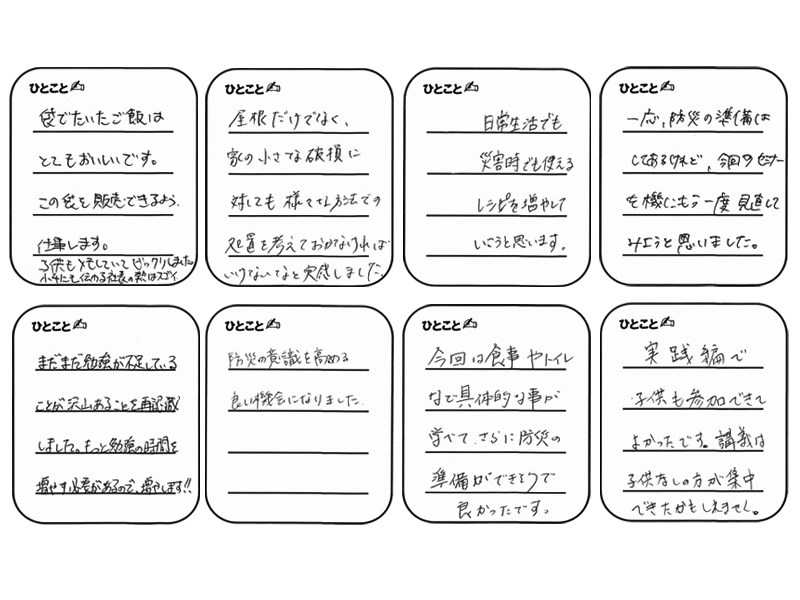 ひとこと
袋でたいたご飯は
とてもおいしいです。
この袋を販売できるよう、
仕事します。
子供もメモしていてビックリしました。
小4にも伝わる社長の熱はスゴイ
ひとこと
屋根だけでなく、
家の小さな破損に
対しても様々な方法での
処置を考えておかなければ
いけないなと実感しました。
ひとこと
日常生活でも
災害時でも使える
レシピを増やして
いこうと思います。
ひとこと
一応、防災の準備は
してあるけれど、今回のセミナー
を機にもう一度見直して
みようと思いました。
ひとこと
まだまだ勉強が不足している
ことが沢山あることを再認識
しました。もっと勉強の時間を
増やす必要があるので、増やします!!
ひとこと
防災の意識を高める
良い機会になりました。
ひとこと
今回は食事やトイレ
など具体的な事が
学べて、さらに防災の
準備ができそうで
良かったです。
ひとこと
実践編で
子供も参加できて
よかったです。講義は
子供なしの方が集中
できたかもしれません。